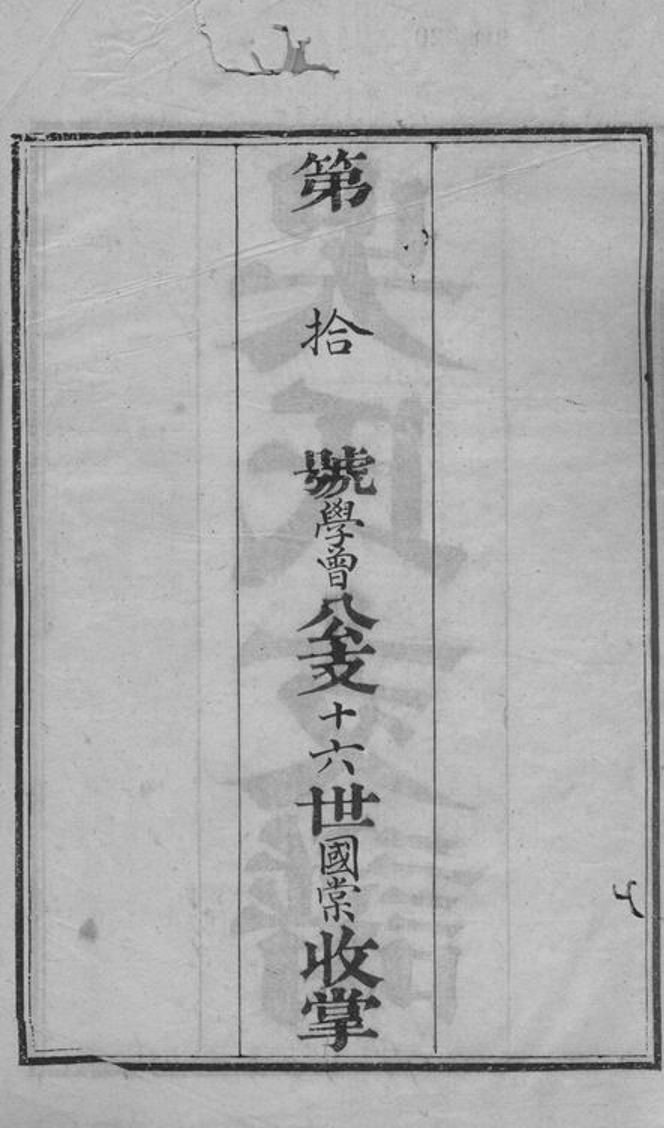 第拾號學曾公支十六世國棠收掌